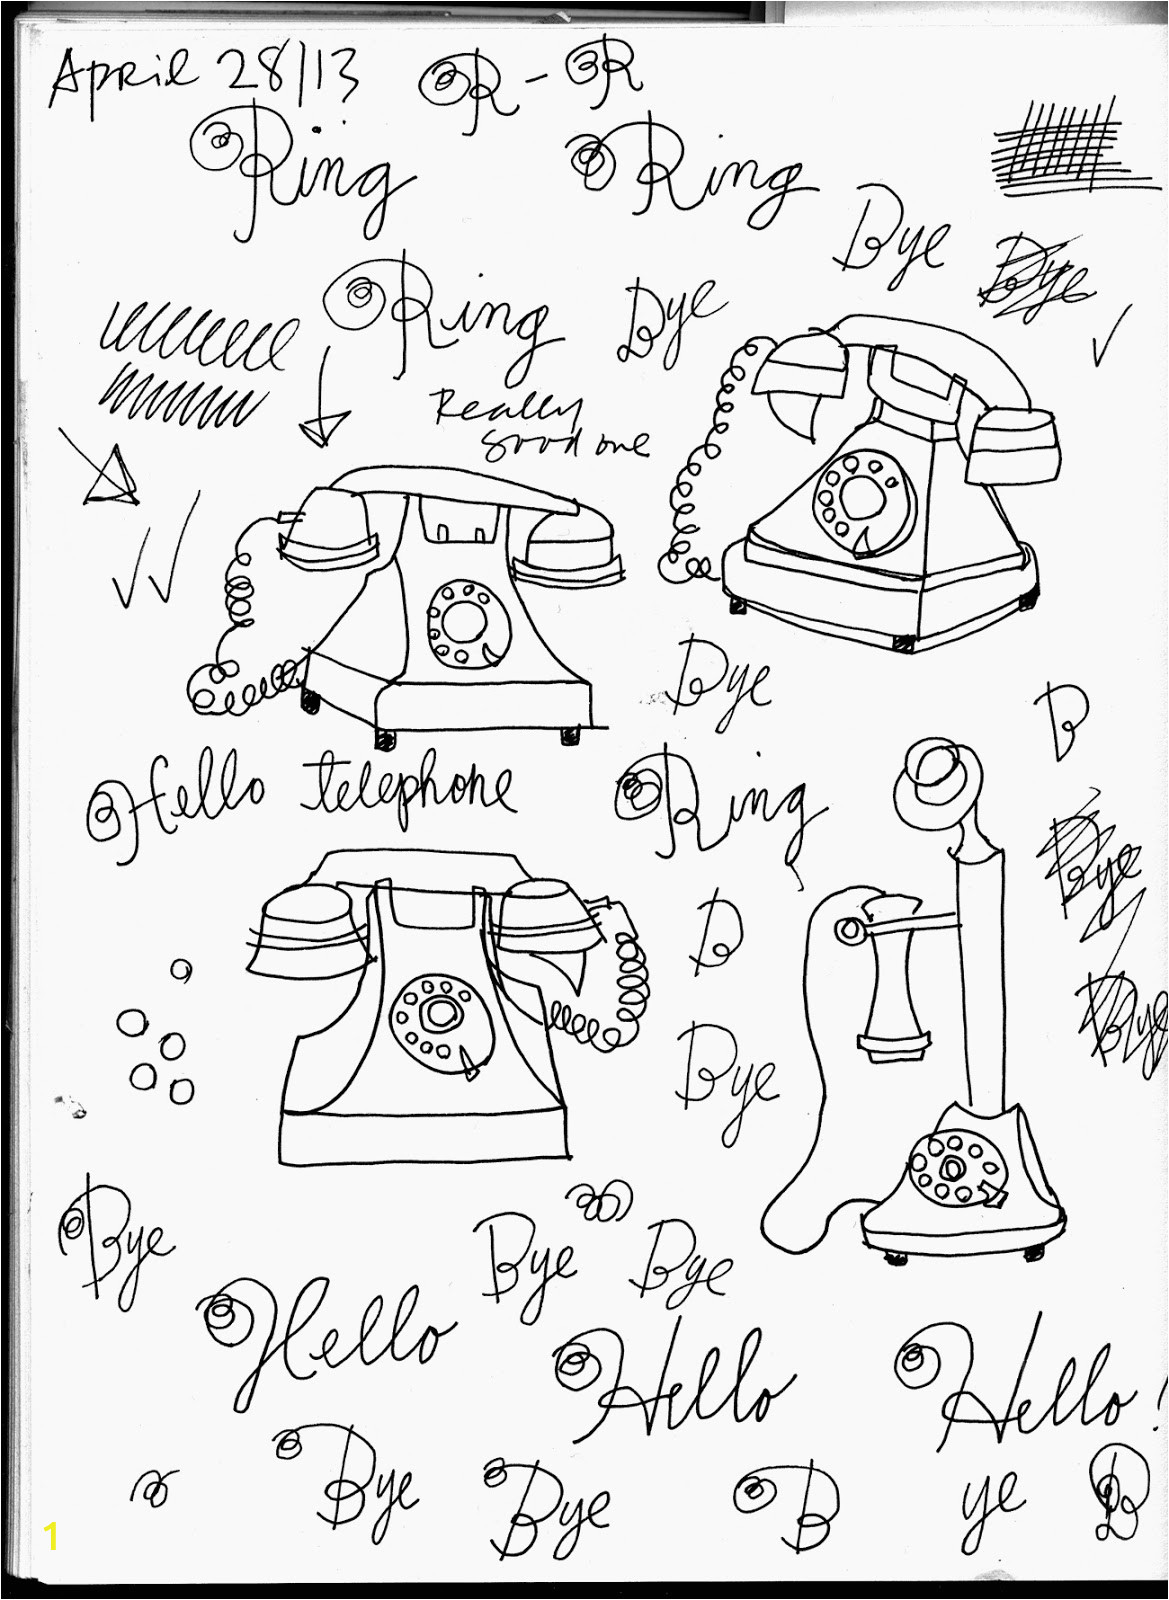 April 28/13 R - R
Ring Ring
Bye Bye
Ring Bye
Really
good one
Bye
B
Hello telephone Ring
Bye
B
Bye
Bye
Bye Bye Bye
Hello Hello Hello!
Bye Bye B ye B
1